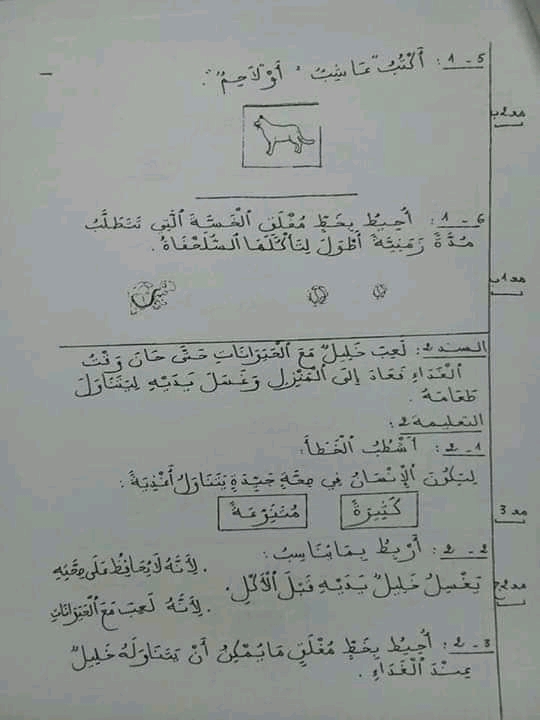 1 - 5 : أَكْتُبُ "عَاشِبٌ" أَوْ "لَاحِمٌ".
مع2ب
1 - 6 : أُحِيطُ بِخَطٍّ مُغْلَقٍ الْخَسَّةَ الَّتِي تَتَطَلَّبُ
مُدَّةً زَمَنِيَّةً أَطْوَلَ لِتَأْكُلَهَا السُّلَحْفَاةُ.
مع1ب
السند 2: لَعِبَ خَلِيلٌ مَعَ الْحَيَوَانَاتِ حَتَّى حَانَ وَقْتُ
الْغَدَاءِ فَعَادَ إِلَى الْمَنْزِلِ وَغَسَلَ يَدَيْهِ لِيَتَنَاوَلَ
طَعَامَهُ.
التعليمة 2:
2 - 1 : أَشْطُبُ الْخَطَأَ:
لِيَكُونَ الْإِنْسَانُ فِي صِحَّةٍ جَيِّدَةٍ يَتَنَاوَلُ أَغْذِيَةً:
كَثِيرَةً
مُتَنَوِّعَةً
مع 3
2 - 2 : أَرْبِطُ بِمَا يُنَاسِبُ:
. لِأَنَّهُ لَا يُحَافِظُ عَلَى صِحَّتِهِ
يَغْسِلُ خَلِيلٌ يَدَيْهِ قَبْلَ الْأَكْلِ.
. لِأَنَّهُ لَعِبَ مَعَ الْحَيَوَانَاتِ
مع2ج
2 - 3 : أُحِيطُ بِخَطٍّ مُغْلَقٍ مَا يُمْكِنُ أَنْ يَتَنَاوَلَهُ خَلِيلٌ
عِنْدَ الْغَدَاءِ.